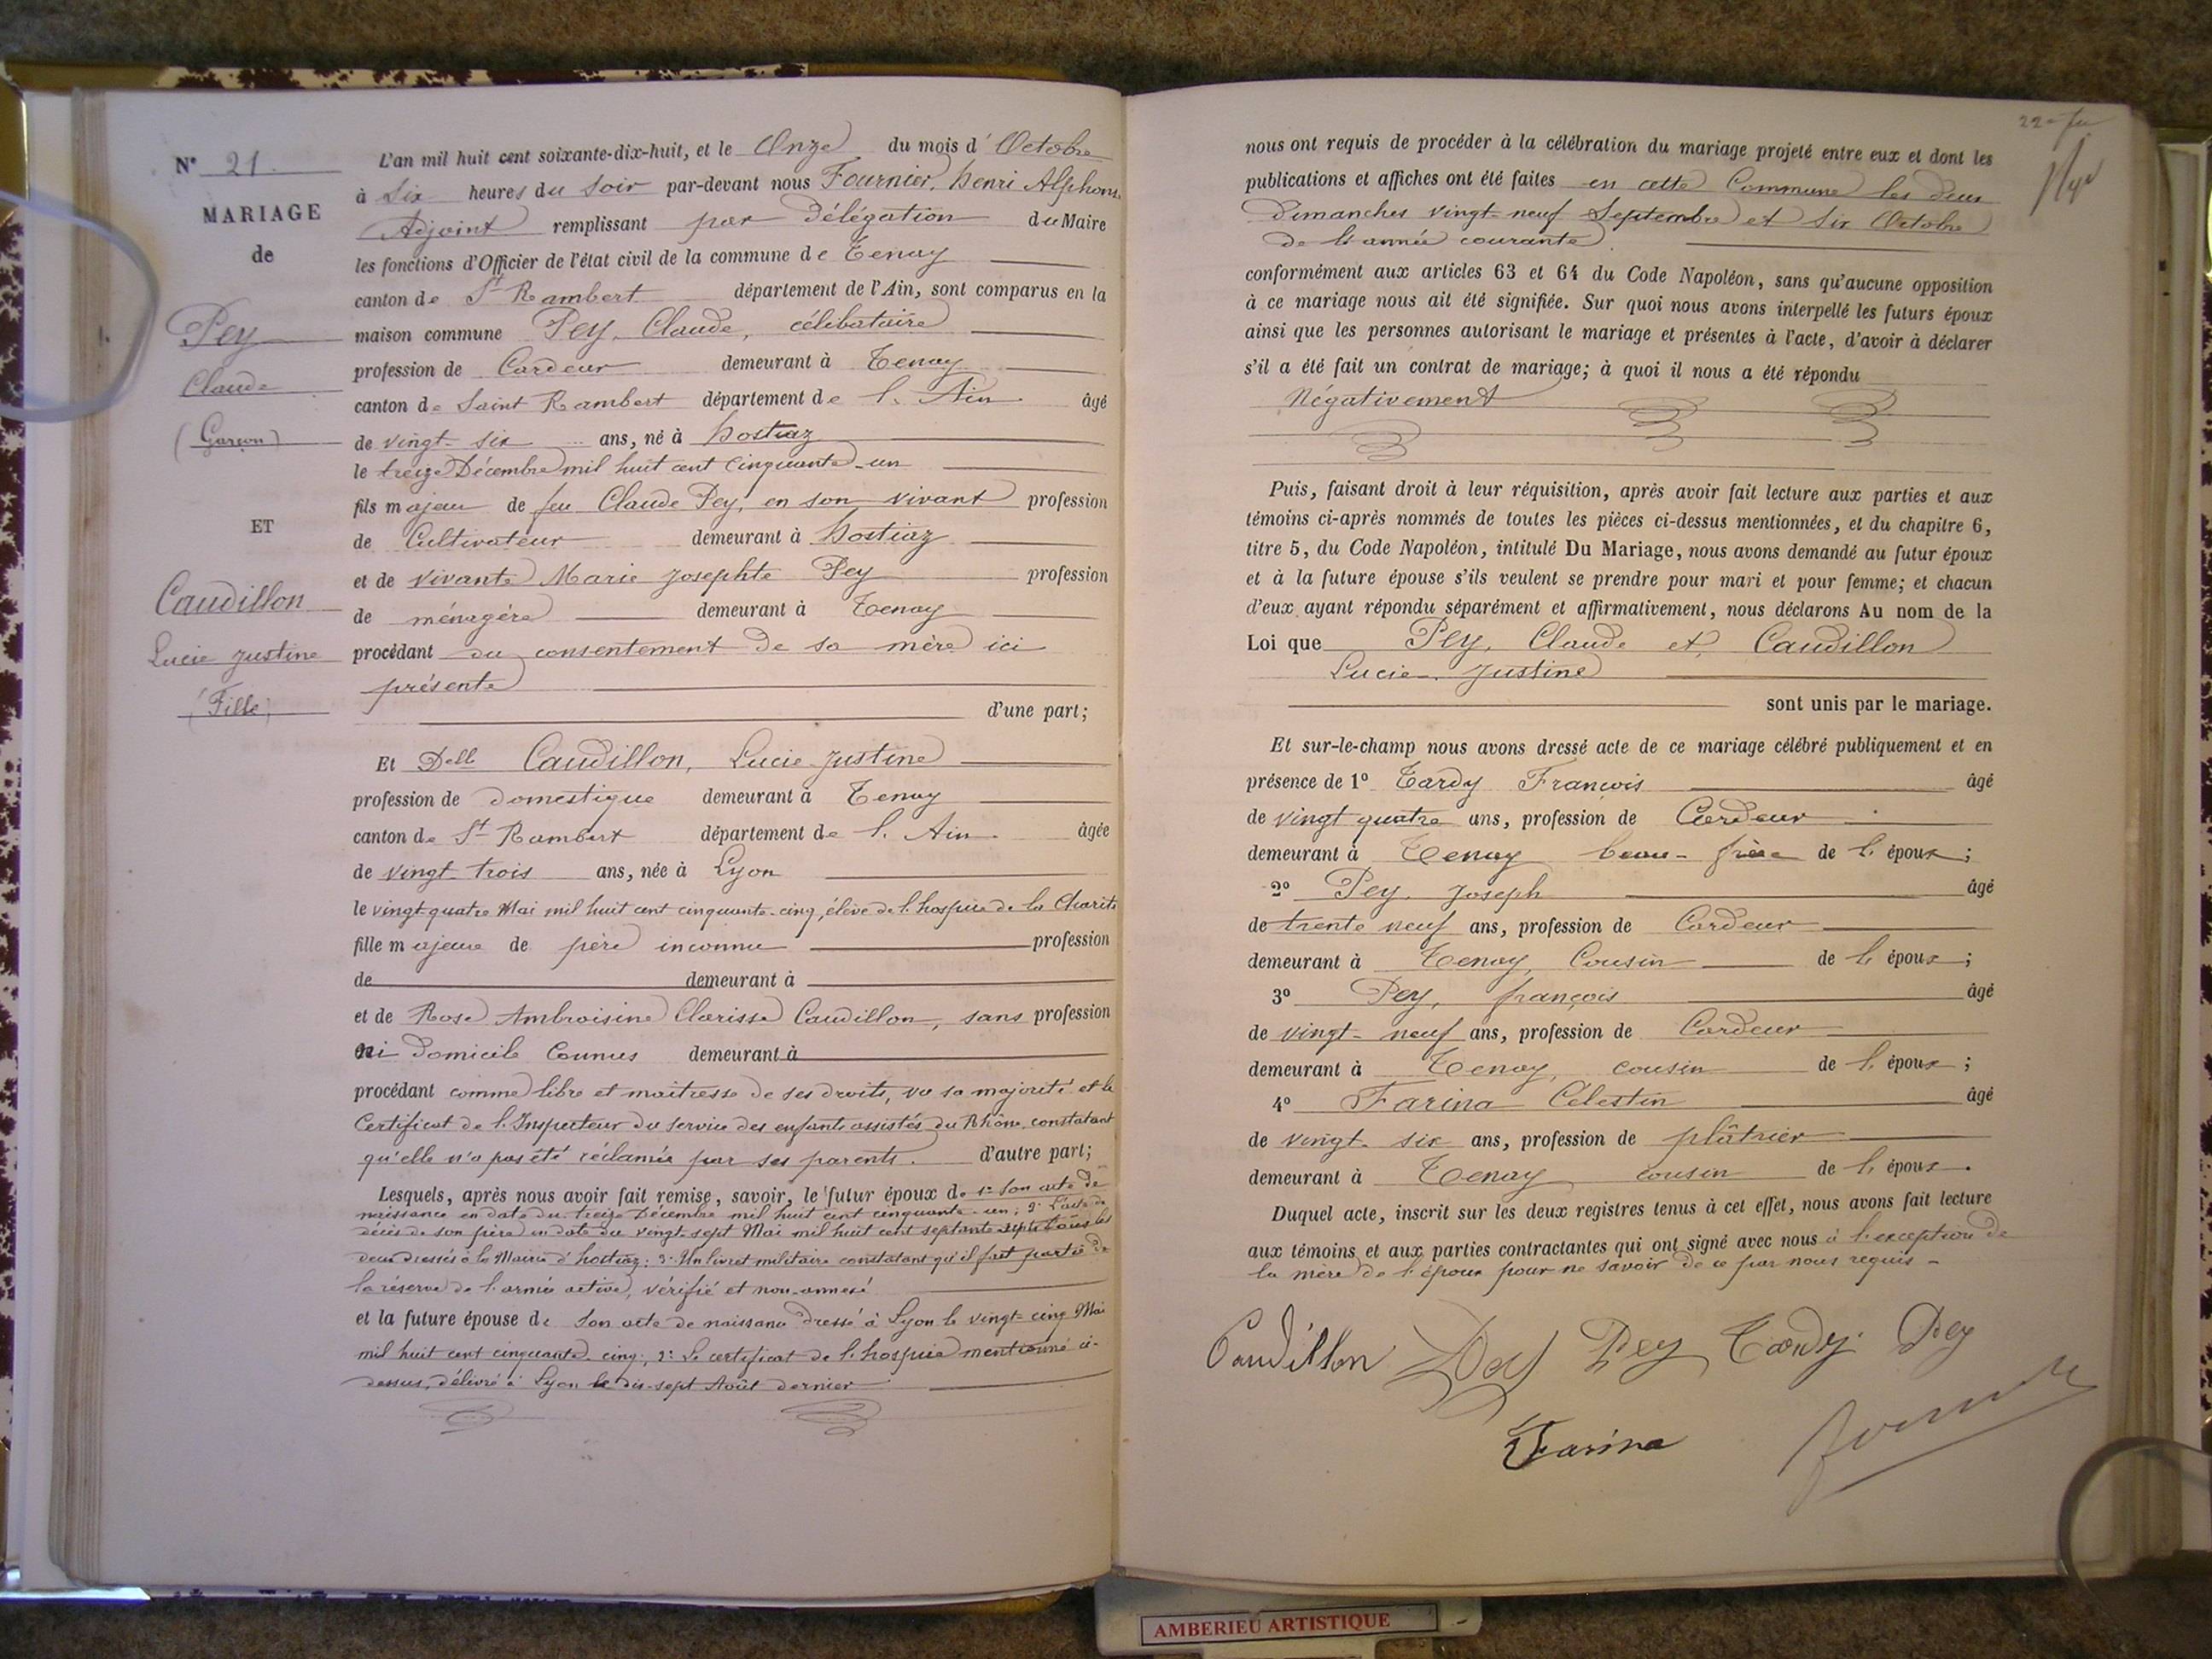 N° 21.
MARIAGE
de
Pey
Claude
(Garçon)
ET
Caudillon
Lucie Justine
(Fille)
L'an mil huit cent soixante-dix-huit, et le Onze du mois d'Octobre
à Six heures du Soir par-devant nous Fournier, henri Alphons.
Adjoint remplissant par Délégation du Maire
les fonctions d'Officier de l'état civil de la commune de Tenay
canton de St Rambert département de l'Ain, sont comparus en la
maison commune Pey, Claude, célibataire
profession de Cardeur demeurant à Tenay
canton de Saint Rambert département de l'Ain. âgé
de vingt-six ans, né à hostiaz
le treize Décembre mil huit cent cinquante-un
fils majeur de feu Claude Pey, en son vivant profession
de Cultivateur demeurant à hostiaz
et de vivante Marie Josephte Pey profession
de ménagère demeurant à Tenay
procédant du consentement de sa mère ici
présente
d'une part;
Et Delle Caudillon, Lucie Justine
profession de domestique demeurant à Tenay
canton de St Rambert département de l'Ain. âgée
de vingt-trois ans, née à Lyon
le vingt-quatre Mai mil huit cent cinquante-cinq, élève de l'hospice de la Charité
fille majeure de père inconnu profession
de demeurant à
et de Rose Ambroisine Clarisse Caudillon, sans profession
ni Domicile Connus demeurant à
procédant comme libre et maitresse de ses droits, vu sa majorité et le
Certificat de l'Inspecteur du service des enfants assistés du Rhône, constatant
qu'elle n'a pas été réclamée par ses parents. d'autre part;
Lesquels, après nous avoir fait remise, savoir, le futur époux de 1° Son acte de
naissance en date du treize Décembre mil huit cent cinquante-un; 2° L'acte de
décès de son père en date du vingt-sept Mai mil huit cent septante-sept tous les
deux dressés à la Mairie d'hostiaz; 3° Un livret militaire constatant qu'il fait partie de
la réserve de l'armée active, vérifié et non-annexé
et la future épouse de Son acte de naissance dressé à Lyon le vingt-cinq Mai
mil huit cent cinquante-cinq; 2° Le certificat de l'hospice mentionné ci-
dessus, délivré à Lyon le dix-sept Août dernier
nous ont requis de procéder à la célébration du mariage projeté entre eux et dont les
publications et affiches ont été faites en cette Commune les deux
Dimanches vingt-neuf Septembre et Six Octobre
de l'année courante.
conformément aux articles 63 et 64 du Code Napoléon, sans qu'aucune opposition
à ce mariage nous ait été signifiée. Sur quoi nous avons interpellé les futurs époux
ainsi que les personnes autorisant le mariage et présentes à l'acte, d'avoir à déclarer
s'il a été fait un contrat de mariage; à quoi il nous a été répondu
Négativement
Puis, faisant droit à leur réquisition, après avoir fait lecture aux parties et aux
témoins ci-après nommés de toutes les pièces ci-dessus mentionnées, et du chapitre 6,
titre 5, du Code Napoléon, intitulé Du Mariage, nous avons demandé au futur époux
et à la future épouse s'ils veulent se prendre pour mari et pour femme; et chacun
d'eux ayant répondu séparément et affirmativement, nous déclarons Au nom de la
Loi que Pey, Claude et Caudillon
Lucie-Justine
sont unis par le mariage.
Et sur-le-champ nous avons dressé acte de ce mariage célébré publiquement et en
présence de 1° Tardy François âgé
de vingt quatre ans, profession de Cardeur
demeurant à Tenay beau-frère de l'époux;
2° Pey, Joseph âgé
de trente neuf ans, profession de Cardeur
demeurant à Tenay, Cousin de l'époux;
3° Pey, françois âgé
de vingt-neuf ans, profession de Cardeur
demeurant à Tenay, cousin de l'époux;
4° Farina Célestin âgé
de vingt-six ans, profession de plâtrier
demeurant à Tenay cousin de l'époux.
Duquel acte, inscrit sur les deux registres tenus à cet effet, nous avons fait lecture
aux témoins et aux parties contractantes qui ont signé avec nous à l'exception de
la mère de l'époux pour ne savoir de ce par nous requis -
Caudillon Pey Pey Tardy Pey
Farina
AMBERIEU ARTISTIQUE